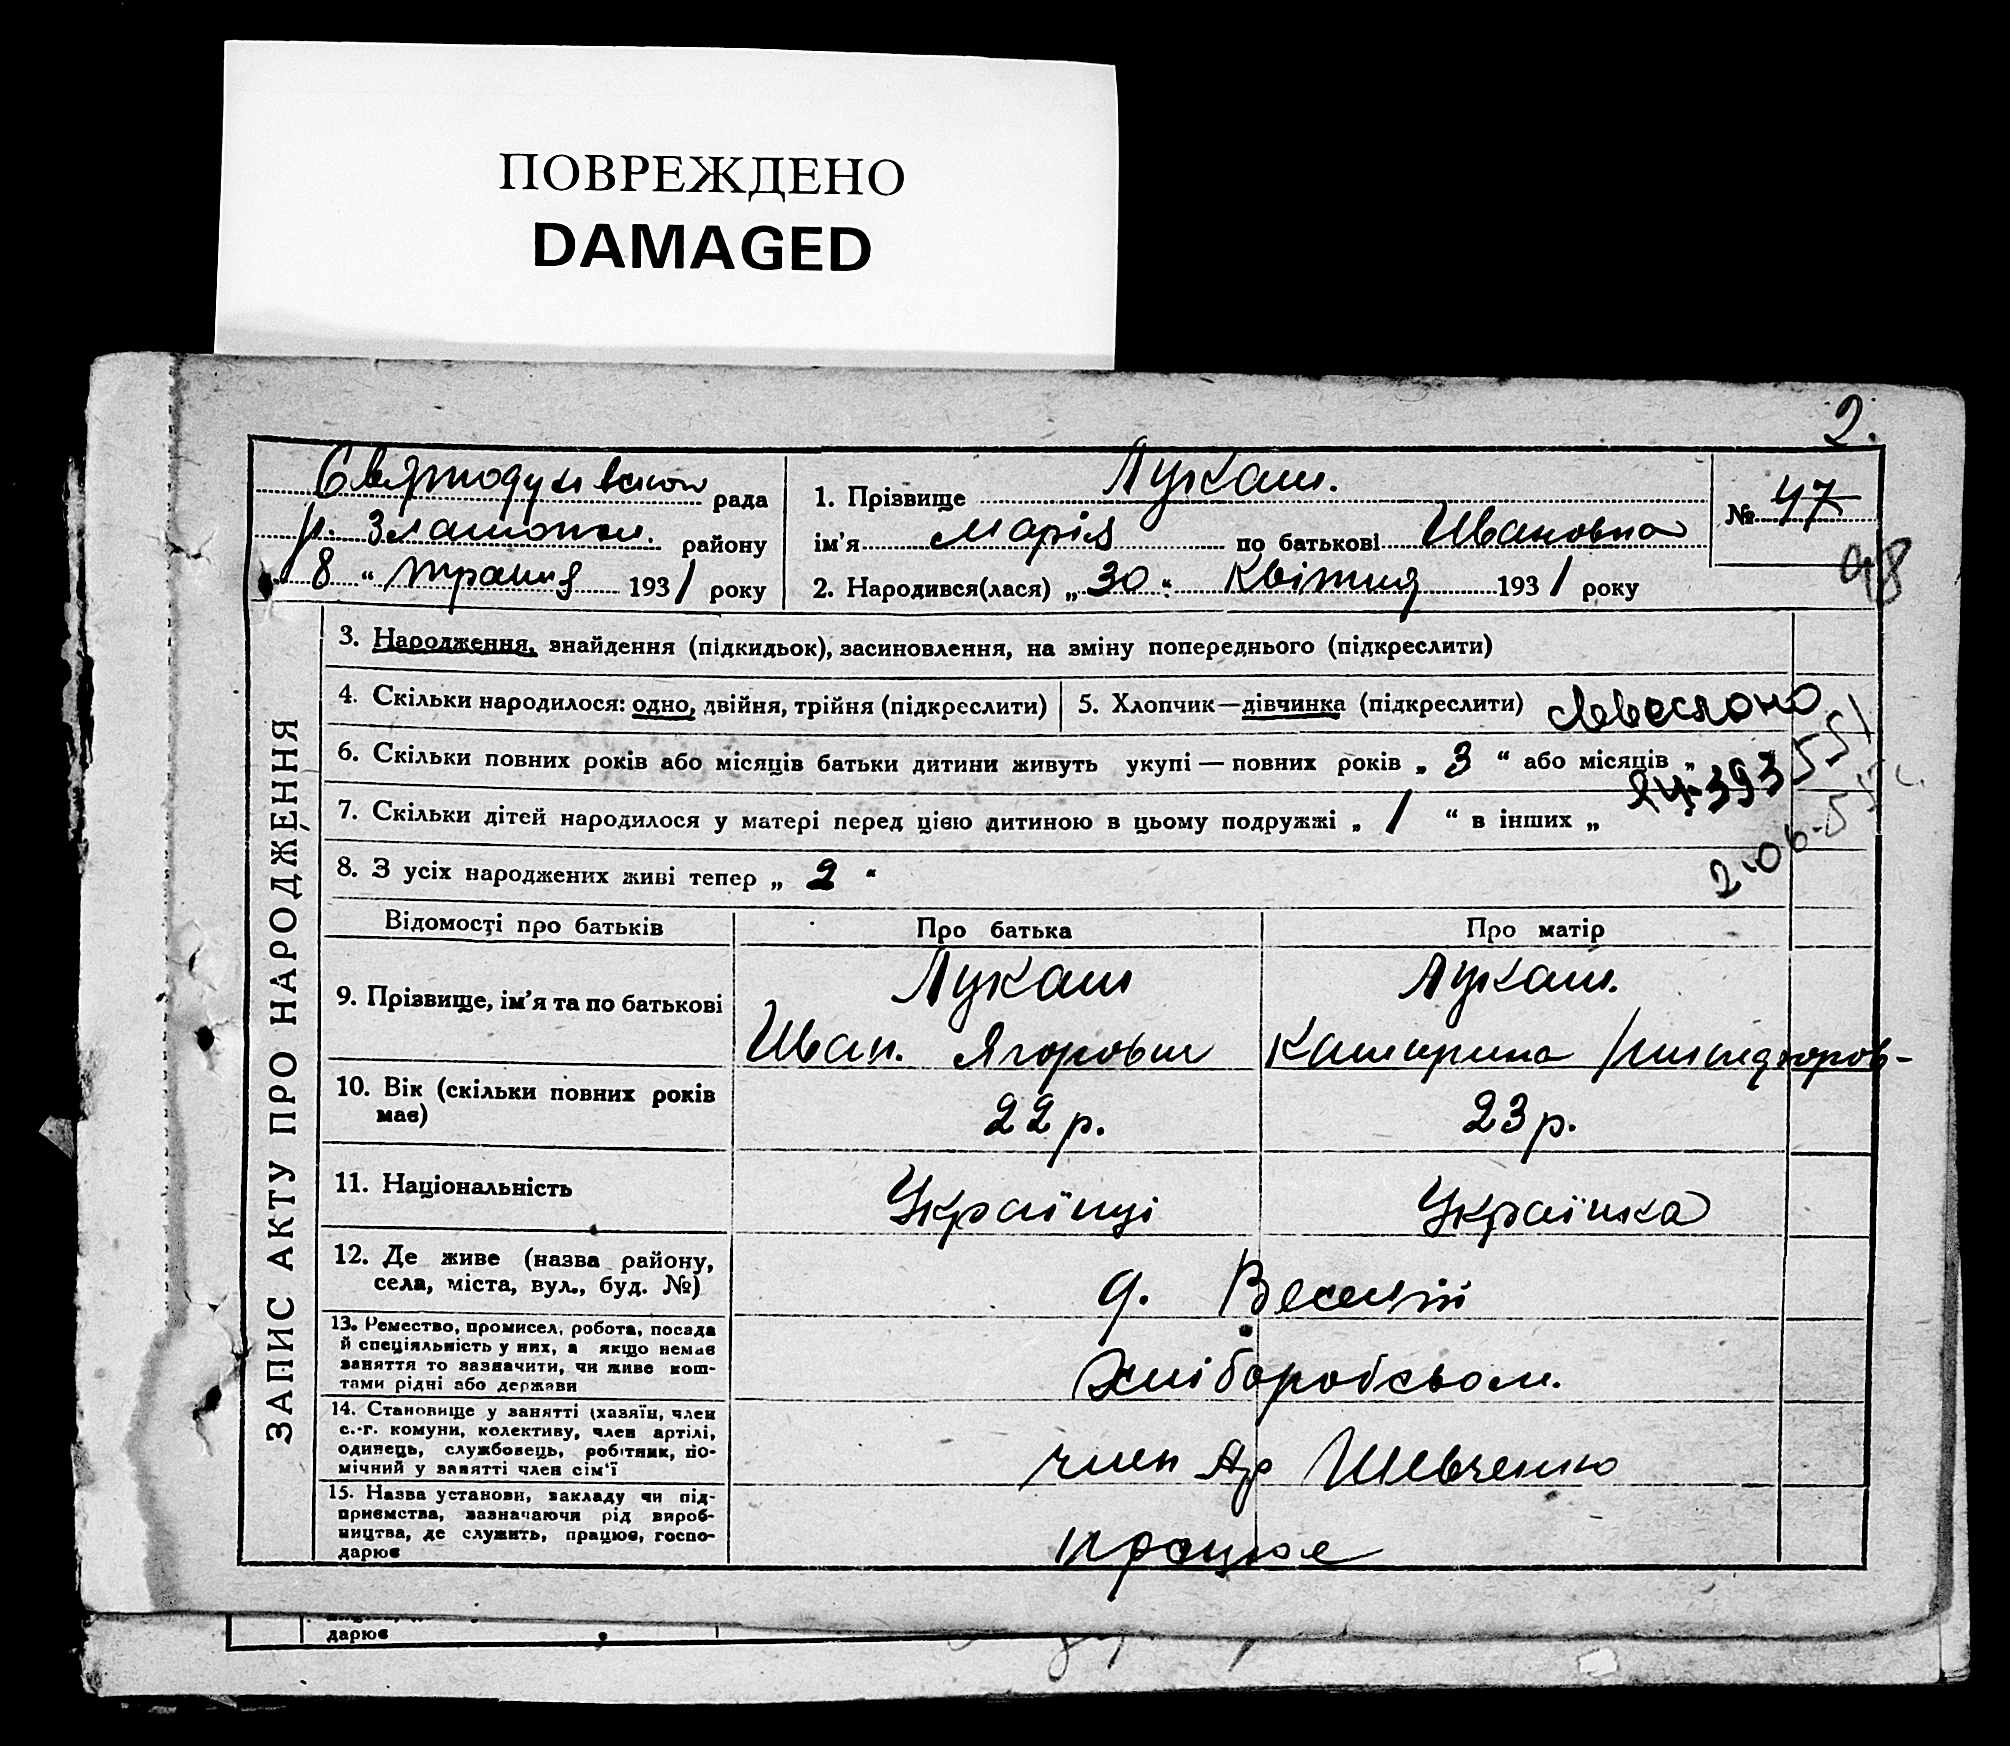 ПОВРЕЖДЕНО
DAMAGED
2.
рада
р. Златопол. району
8 " травня 1931 року
1. Прізвище Лукаш.
ім'я Марія по батькові Ивановна
2. Народився(лася) „ 30 " Квітня 1931 року
№ 47
48
ЗАПИС АКТУ ПРО НАРОДЖЕННЯ
3. Народження, знайдення (підкидьок), засиновлення, на зміну попереднього (підкреслити)
4. Скільки народилося: одно, двійня, трійня (підкреслити)
5. Хлопчик—дівчинка (підкреслити)
6. Скільки повних років або місяців батьки дитини живуть укупі — повних років „ 3 " або місяців „
7. Скільки дітей народилося у матері перед цією дитиною в цьому подружжі „ 1 " в інших „
8. З усіх народжених живі тепер „ 2 "
Відомості про батьків Про батька Про матір
9. Прізвище, ім'я та по батькові
Лукаш Лукаш.
Иван. Ягорович Катирина
10. Вік (скільки повних років
має)
22 р. 23 р.
11. Національність
Українці Українка
12. Де живе (назва району,
села, міста, вул., буд. №)
д. Веселий
13. Ремество, промисел, робота, посада
й спеціяльність у них, а якщо немає
заняття то зазначити, чи живе кош-
тами рідні або держави
Хліборобсвом.
14. Становище у занятті (хазяїн, член
с.-г. комуни, колективу, член артілі,
одинець, службовець, робітник, по-
мічний у занятті член сім'ї
член Ар Шевченко
15. Назва установи, закладу чи під-
приємства, зазначаючи рід вироб-
ництва, де служить, працює, госпо-
дарює
працює
дарює